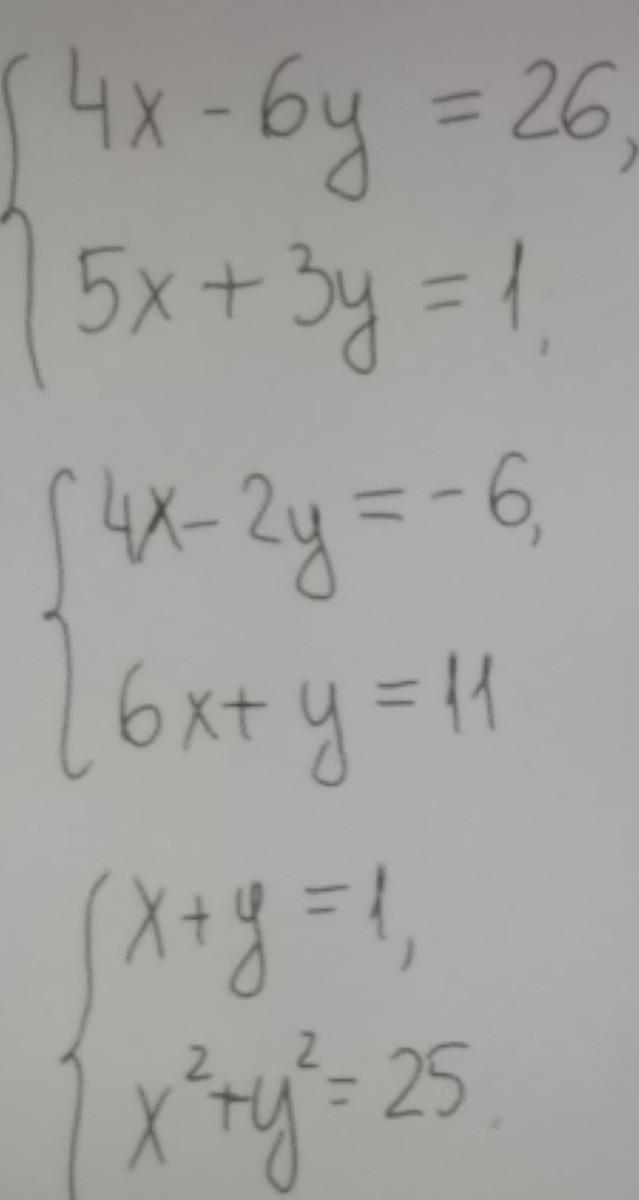 4x - 6y = 26,
5x + 3y = 1.
4x - 2y = - 6,
6x + y = 11
x + y = 1,
x² + y² = 25.